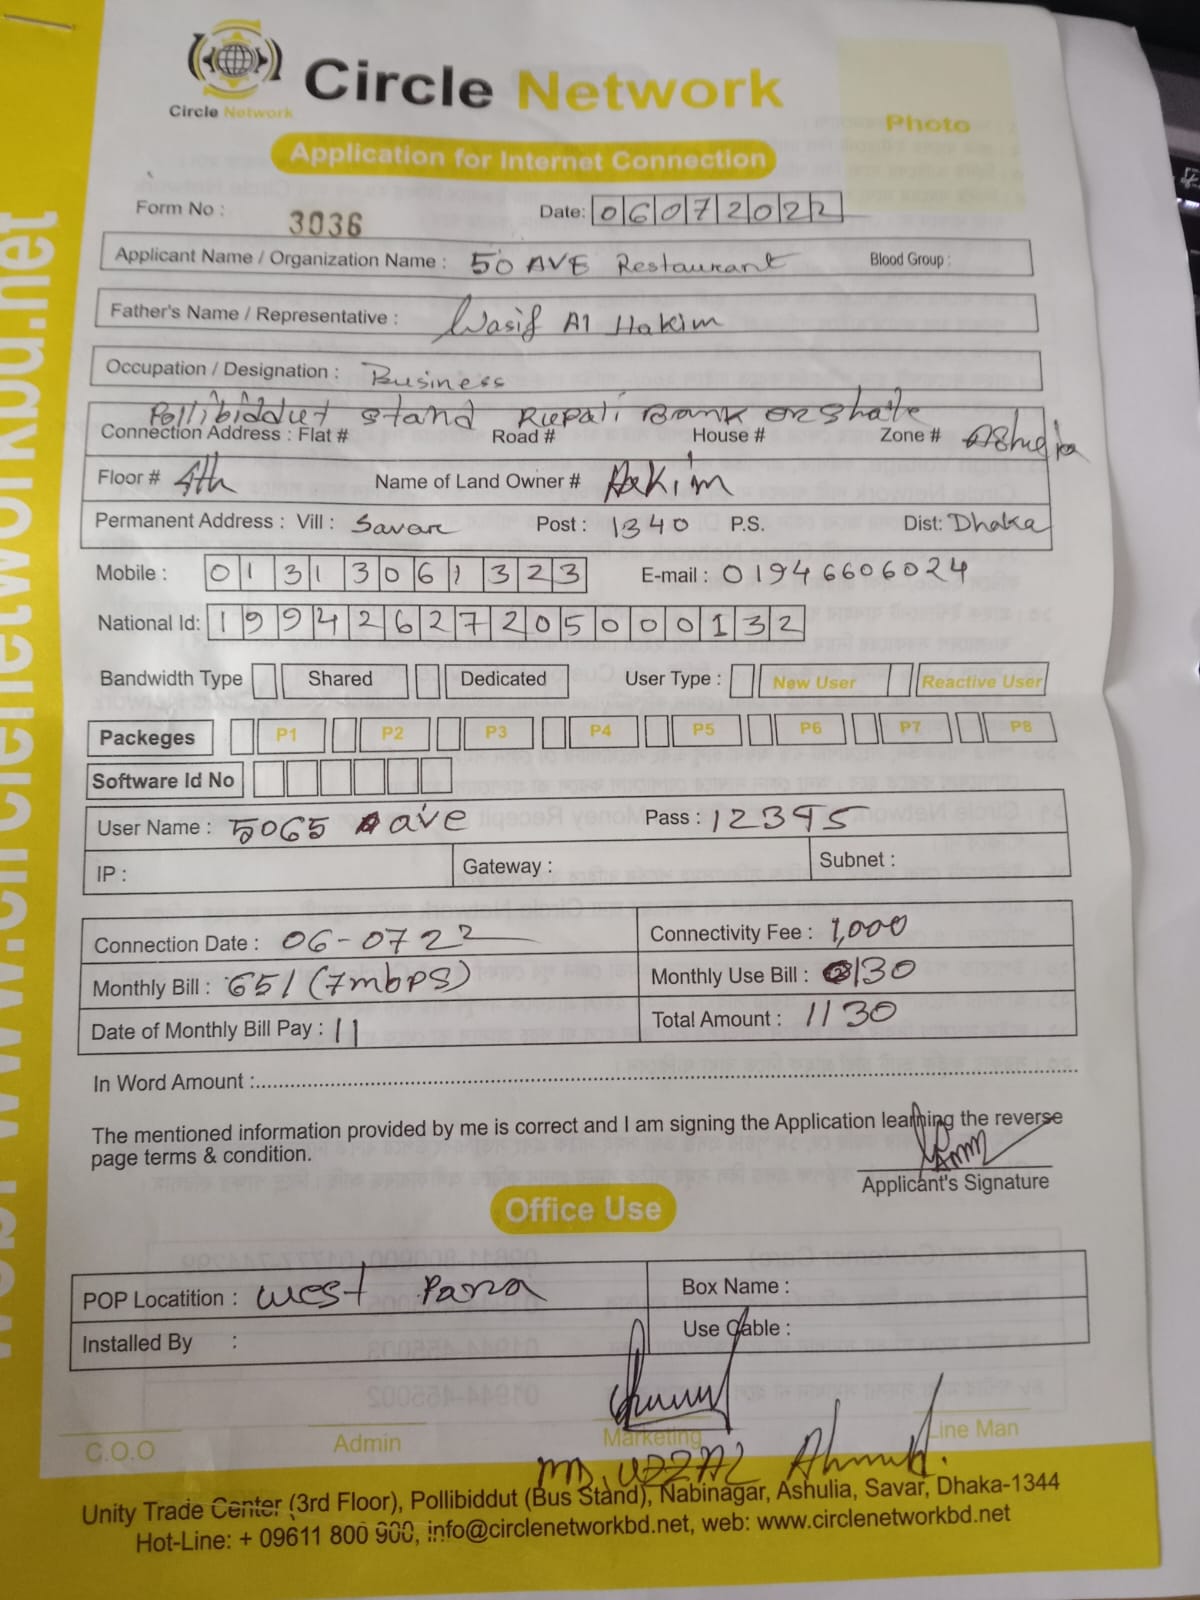 Circle Network
Circle Network
Photo
Application for Internet Connection
Form No : 3036 Date: 06072022
Applicant Name / Organization Name : 50 AVE Restaurant Blood Group :
Father's Name / Representative : Wasif Al Hakim
Occupation / Designation : Business
Pollibiddut stand Rupali Bank
Connection Address : Flat # Road # House # Zone # Ashulia
Floor # 4th Name of Land Owner # Hakim
Permanent Address : Vill : Savar Post : 1340 P.S. Dist: Dhaka
Mobile : 01313061323 E-mail : 01946606024
National Id: 19942627205000132
Bandwidth Type Shared Dedicated User Type : New User Reactive User
Packeges P1 P2 P3 P4 P5 P6 P7 P8
Software Id No
User Name : 5065 ave Pass : 12345
IP : Gateway : Subnet :
Connection Date : 06-07 22 Connectivity Fee : 1,000
Monthly Bill : 651 (7mbps) Monthly Use Bill : 130
Date of Monthly Bill Pay : 11 Total Amount : 1130
In Word Amount :
The mentioned information provided by me is correct and I am signing the Application learning the reverse
page terms & condition.
Applicant's Signature
Office Use
POP Locatition : West Para Box Name :
Installed By : Use Cable :
C.O.O Admin Marketing Line Man
MD. UZZAL Ahmed.
Unity Trade Center (3rd Floor), Pollibiddut (Bus Stand), Nabinagar, Ashulia, Savar, Dhaka-1344
Hot-Line: + 09611 800 900, info@circlenetworkbd.net, web: www.circlenetworkbd.net
www.circlenetworkbd.net